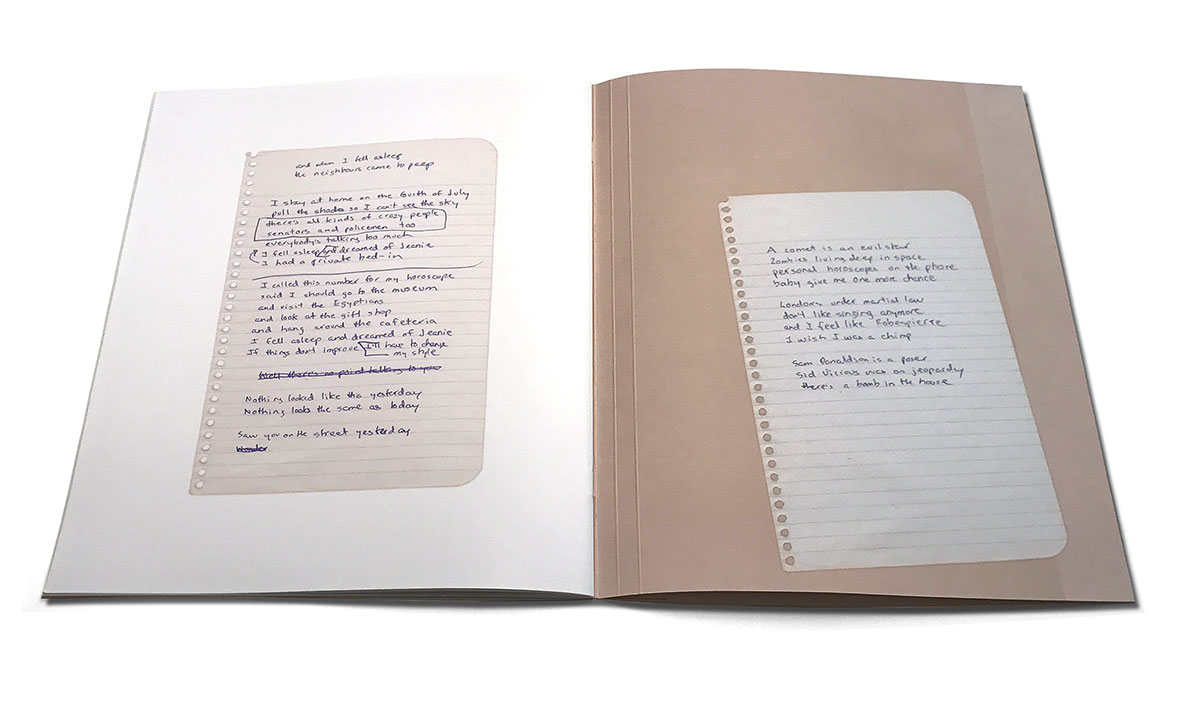 and when I fell asleep
the neighbours came to peep
I stay at home on the fourth of July
pull the shades so I can't see the sky
there's all kinds of crazy people
senators and policemen too
everybody's talking too much
I fell asleep and dreamed of Jeanie
I had a private bed-in
I called this number for my horoscope
said I should go to the museum
and visit the Egyptions
and look at the gift shop
and hang around the cafeteria
I fell asleep and dreamed of Jeanie
If things don't improve I'll have to change
my style
Well there's no point talking to you
Nothing looked like this yesterday
Nothing looks the same as today
Saw you on the street yesterday
Wonder
A comet is an evil star
Zombies living deep in space
personal horoscopes on the phone
baby give me one more chance
Londons under martial law
don't like singing anymore
and I feel like Robespierre
I wish I was a chimp
Sam Donaldson is a poser
Sid Vicious was on jeopardy
there's a bomb in the house